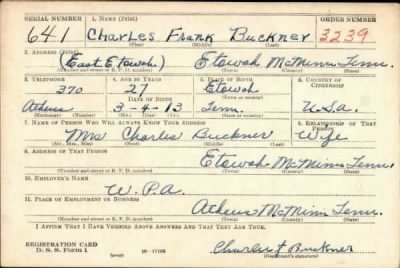 SERIAL NUMBER 1. NAME (Print) ORDER NUMBER
641 Charles Frank Buckner 3239
(First) (Middle) (Last)
2. ADDRESS (Print)
(East Etowah) Etowah McMinn Tenn.
(Number and street or R. F. D. number) (Town) (County) (State)
3. TELEPHONE 4. AGE IN YEARS 5. PLACE OF BIRTH 6. COUNTRY OF CITIZENSHIP
370 27 Etowah
DATE OF BIRTH (Town or county)
Athens 3-4-13 Tenn. U.S.A.
(Exchange) (Number) (Mo.) (Day) (Yr.) (State or country)
7. NAME OF PERSON WHO WILL ALWAYS KNOW YOUR ADDRESS 8. RELATIONSHIP OF THAT PERSON
Mrs Charles Buckner Wife
(Mr., Mrs., Miss) (First) (Middle) (Last)
9. ADDRESS OF THAT PERSON
Etowah McMinn Tenn.
(Number and street or R. F. D. number) (Town) (County) (State)
10. EMPLOYER'S NAME
W.P.A.
11. PLACE OF EMPLOYMENT OR BUSINESS
Athens McMinn Tenn.
(Number and street or R. F. D. number) (Town) (County) (State)
I AFFIRM THAT I HAVE VERIFIED ABOVE ANSWERS AND THAT THEY ARE TRUE.
REGISTRATION CARD
D. S. S. Form 1 (over) Charles F Buckner
(Registrant's signature)